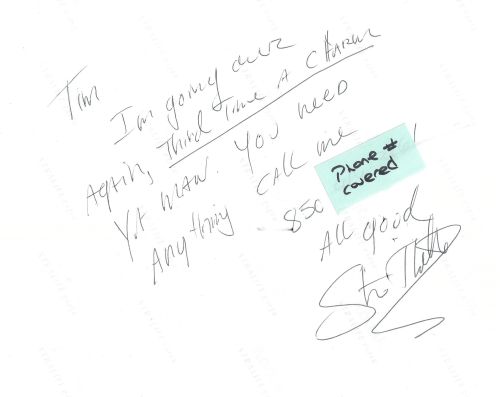 Tim
I'm going over
Again, Third Time A Charm
Ya man. You need
Anything call me
850
Phone #
covered
All good